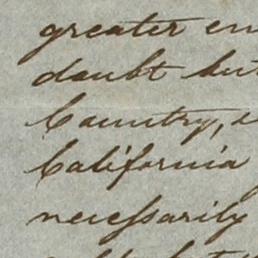 greater
doubt but
Country,
California
necessarily